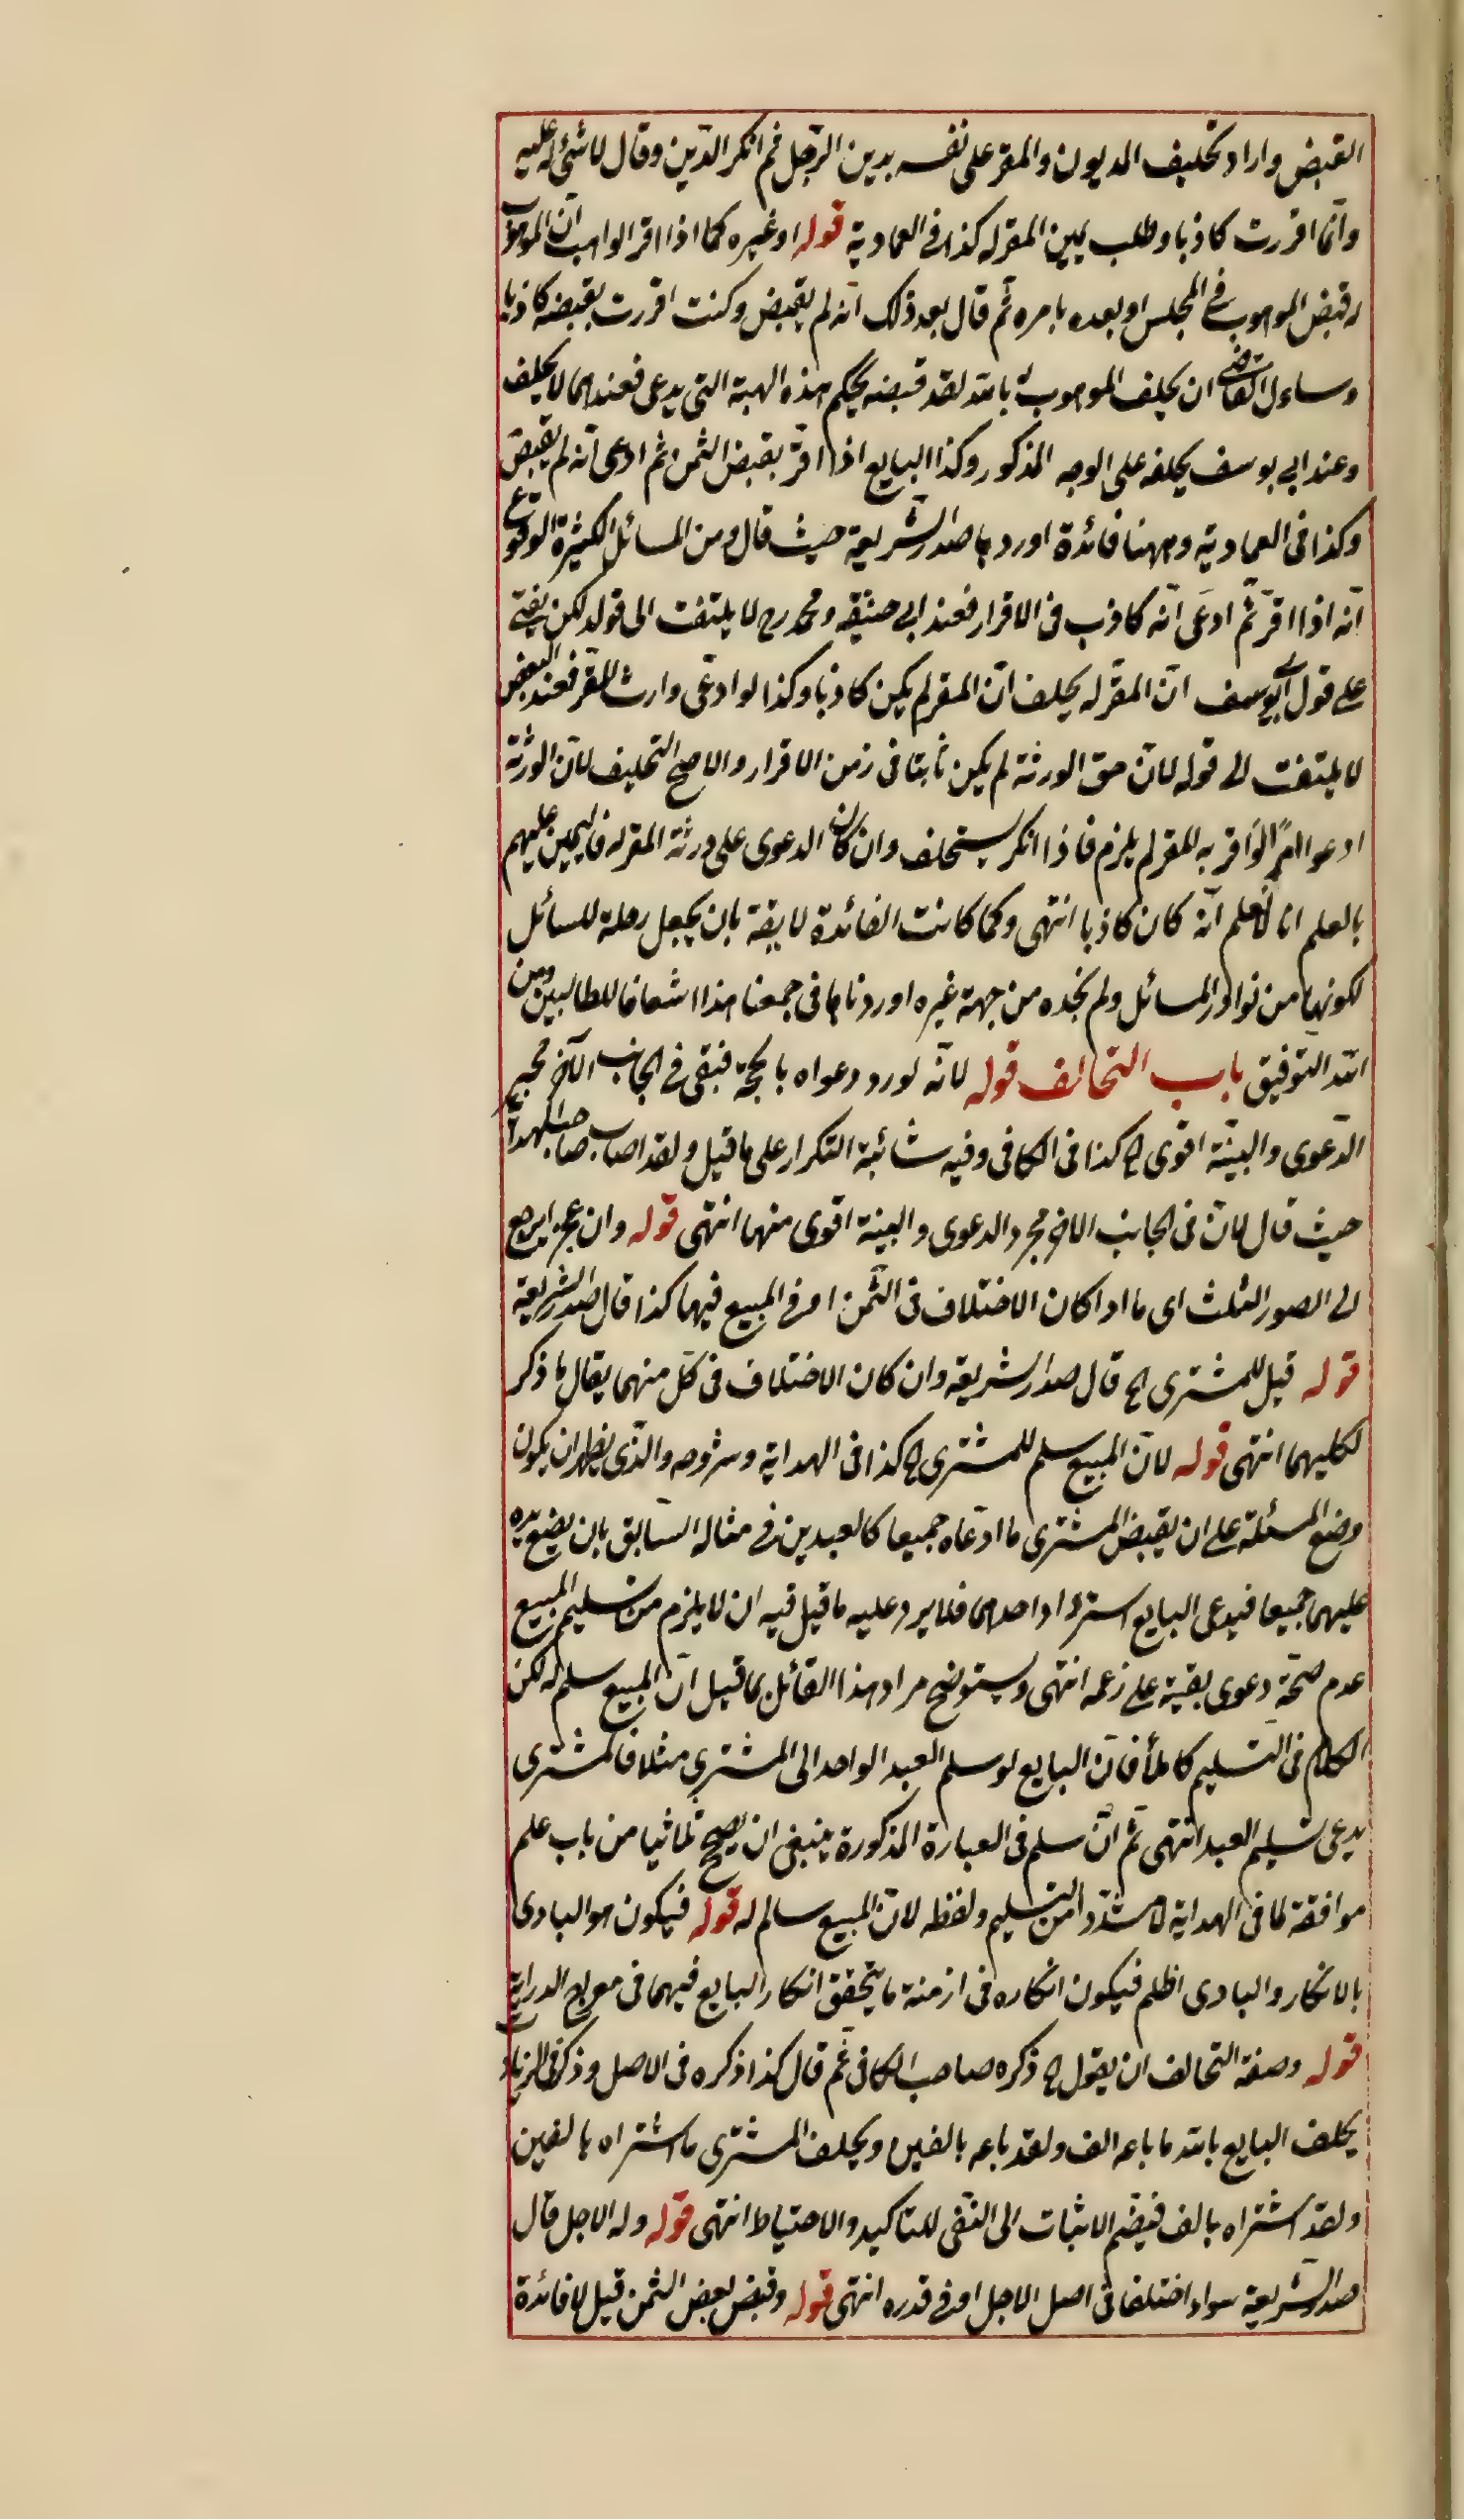 القبض واراد تحليف المديون والمقر على نفسه بدين الرجل ثم انكر الدين وقال لا شئ له عليه
وانما اقررت كاذبا وطلب يمين المقر له كذا فى العمادية قوله او غيره كما اذا اقر الواهب ان الموهوب
له قبض الموهوب فى المجلس او بعده بامره ثم قال بعد ذلك انه لم يقبض وكنت اقررت بقبضه كاذبا
وسأل القاضى ان يحلف الموهوب له بالله لقد قبضه بحكم هذه الهبة التى يدعى فعندهما لا يحلف
وعند ابى يوسف يحلف على الوجه المذكور وكذا البايع اذا اقر بقبض الثمن ثم ادعى انه لم يقبض
وكذا فى العمادية وههنا فائدة اوردها صدر الشريعة حيث قال ومن المسائل الكثيرة الوقوع
انه اذا اقر ثم ادعى انه كاذب فى الاقرار فعند ابى حنيفه ومحمد رح لا يلتفت الى قوله لكن يفتى
على قول ابى يوسف ان المقر له يحلف ان المقر لم يكن كاذبا وكذا لو ادعى وارث المقر فعند البعض
لا يلتفت الى قوله لان حق الورثة لم يكن ثابتا فى زمن الاقرار والاصح التحليف لان الورثة
ادعوا امرا لو اقر به المقر له يلزم فاذا انكر يستحلف وان كان الدعوى على ورثة المقر له فاليمين عليهم
بالعلم انا لا نعلم انه كان كاذبا انتهى وكما كانت الفائدة لايقة بان يجعل رحلة للسائل
لكونها من نوادر المسائل ولم نجده من جهة غيره اوردناها فى جمعنا هذا اسعافا للطالبين ومن
الله التوفيق باب التحالف قوله لانه لورد دعواه بالحجة فبقى فى الجانب الآخر مجرد
الدعوى والبينة اقوى الخ كذا فى الكافى وفيه شائبة التكرار على ما قيل ولقد اصاب صاحب الهداية
حيث قال لان فى الجانب الاخر مجرد الدعوى والبينة اقوى منهما انتهى قوله وان عجزا يرجع
الى الصور الثلث اى ما اذا كان الاختلاف فى الثمن او فى المبيع فيهما كذا قال صدر الشريعة
قوله قيل للمشترى الخ قال صدر الشريعة وان كان الاختلاف فى كل منهما يقال ما ذكر
لكليهما انتهى قوله لان المبيع سلم للمشترى الخ كذا فى الهداية وشروحه والذى يظهر ان يكون
وضع المسئلة على ان يقبض المشترى ما ادعاه جميعا كالعبدين فى مثاله السابق بان يضع يده
عليهما جميعا فيدعى البايع استرداد احدهما فلا يرد عليه ما قيل فيه ان لا يلزم من تسليم المبيع
عدم صحة دعوى بقيته على زعمه انتهى ويستوضح مراد هذا القائل بما قيل ان المبيع سلم له لكن
الكلام فى التسليم كاملا فان البايع لو سلم العبد الواحد الى المشترى مثلا فالمشترى
يدعى تسليم العبد انتهى ثم ان سلم فى العبارة المذكورة ينبغى ان يصح ثلاثيا من باب علم
موافقة لما فى الهداية لا مشددا من التسليم ولفظه لان المبيع سالم له قوله فيكون هو البادى
بالانكار والبادى اظلم فيكون انكاره فى ازمنة ما يتحقق انكار البايع فيهما فى معراج الدراية
قوله وصفة التحالف ان يقول الخ ذكره صاحب الكافى ثم قال كذا ذكره فى الاصل وذكر فى الزيادات
يحلف البايع بالله ما باعه الف ولقد باعه بالفين ويحلف المشترى ما اشتراه بالفين
ولقد اشتراه بالف فيضم الاثبات الى النفى للتاكيد والاحتياط انتهى قوله وله الاجل قال
صدر الشريعة سواء اختلفا فى اصل الاجل او فى قدره انتهى قوله وقبض بعض الثمن قيل لا فائدة